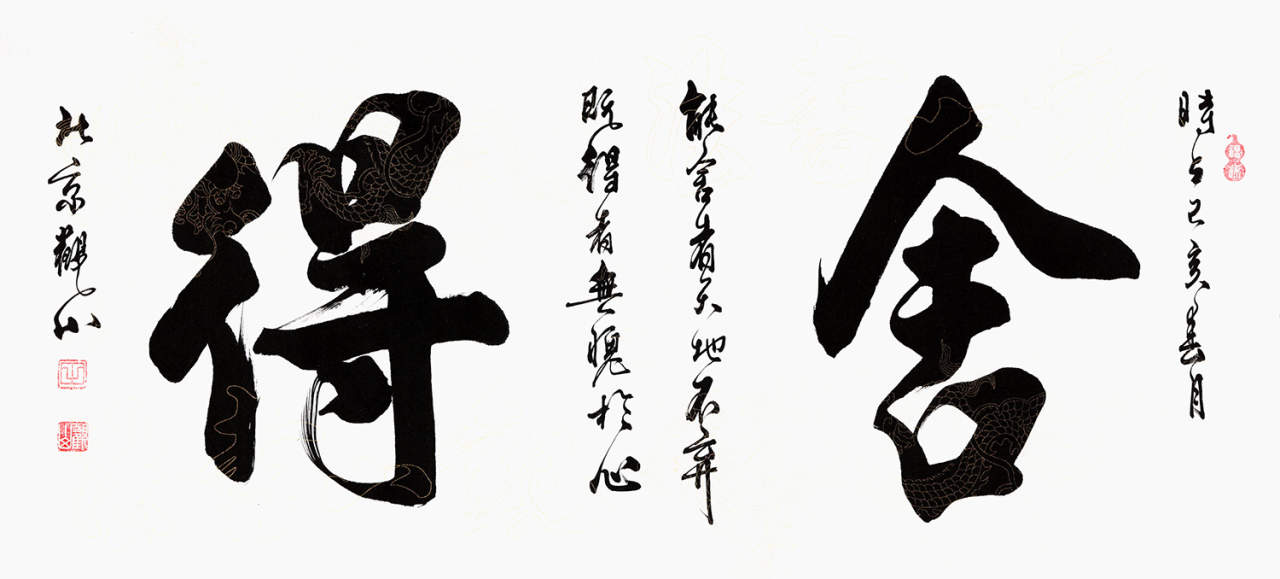 時在己亥春月
舍
能舍者天地不弃
既得者無愧於心
得
京